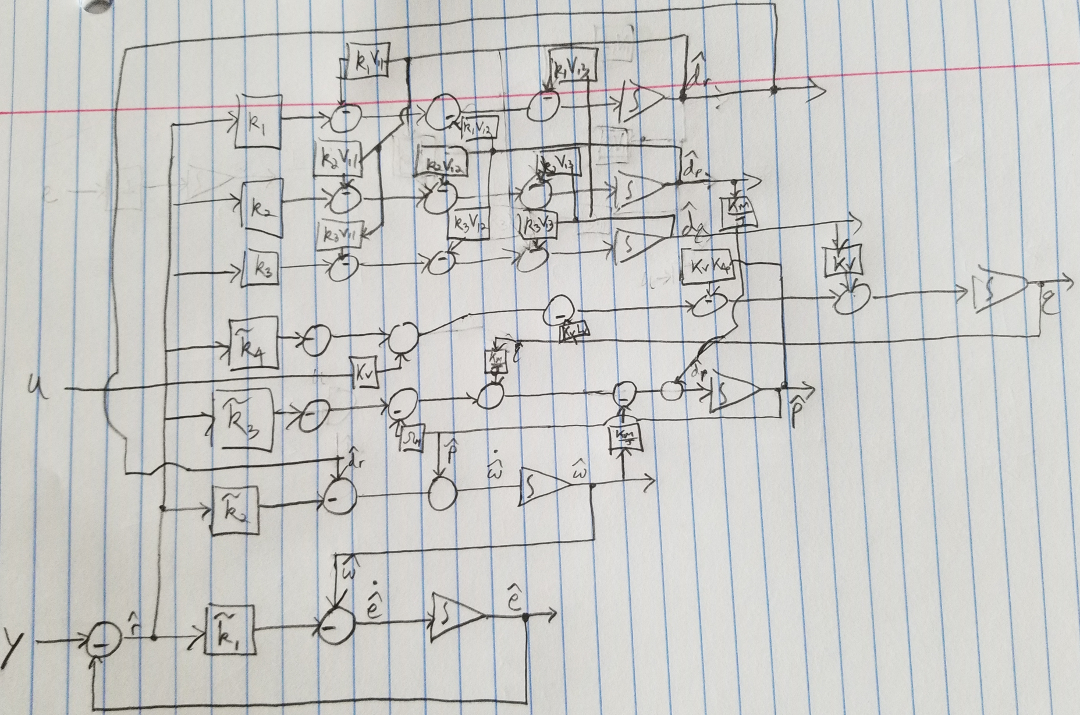 k₁V₁₁ k₁V₁₃ d̂r
k₁ - - - ∫
k₁V₁₂
k₂V₁₁ k₂V₁₂ k₂V₁₃ d̂p
k₂ - - - ∫
Km
k₃V₁₁ k₃V₁₂ k₃V₁₃ d̂q
k₃ - - - ∫
KvK₄ Kv
- ∫ q
k̃₄ - -
Kv
u Kv q
d̂p
k̃₃ - - - ∫ p̂
p̂
d̂r ω̂̇ ω̂
k̃₂ - ∫
ω̂
r̂ ê̇ ê
y - k̃₁ - ∫